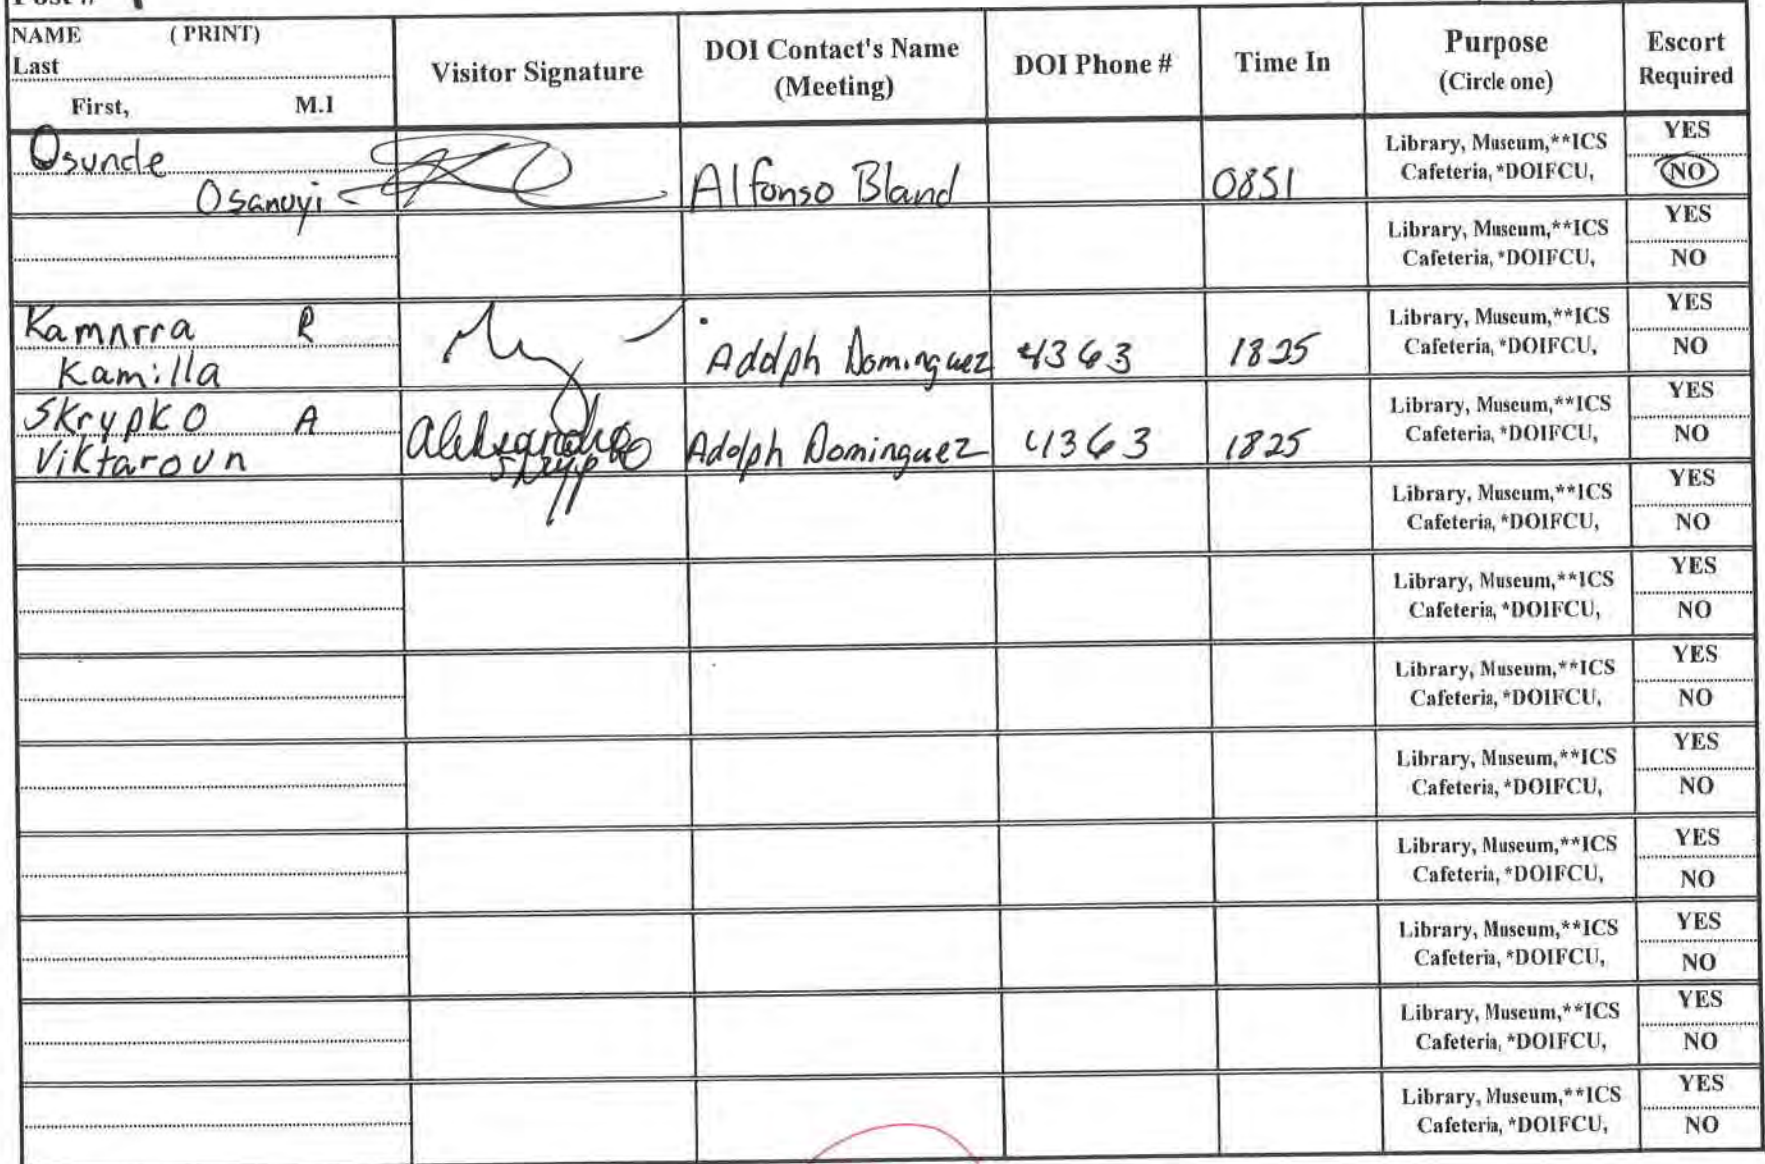 NAME ( PRINT)
Last
First, M.I
Visitor Signature
DOI Contact's Name
(Meeting)
DOI Phone #
Time In
Purpose
(Circle one)
Escort
Required
Osunde
Osanuyi
Alfonso Bland
0851
Library, Museum,**ICS
Cafeteria, *DOIFCU,
YES
NO
Library, Museum,**ICS
Cafeteria, *DOIFCU,
YES
NO
Kamnrra R
Kamilla
Adolph Dominguez
4363
1825
Library, Museum,**ICS
Cafeteria, *DOIFCU,
YES
NO
Skrypko A
Viktaroun
Adolph Dominguez
4363
1825
Library, Museum,**ICS
Cafeteria, *DOIFCU,
YES
NO
Library, Museum,**ICS
Cafeteria, *DOIFCU,
YES
NO
Library, Museum,**ICS
Cafeteria, *DOIFCU,
YES
NO
Library, Museum,**ICS
Cafeteria, *DOIFCU,
YES
NO
Library, Museum,**ICS
Cafeteria, *DOIFCU,
YES
NO
Library, Museum,**ICS
Cafeteria, *DOIFCU,
YES
NO
Library, Museum,**ICS
Cafeteria, *DOIFCU,
YES
NO
Library, Museum,**ICS
Cafeteria, *DOIFCU,
YES
NO
Library, Museum,**ICS
Cafeteria, *DOIFCU,
YES
NO